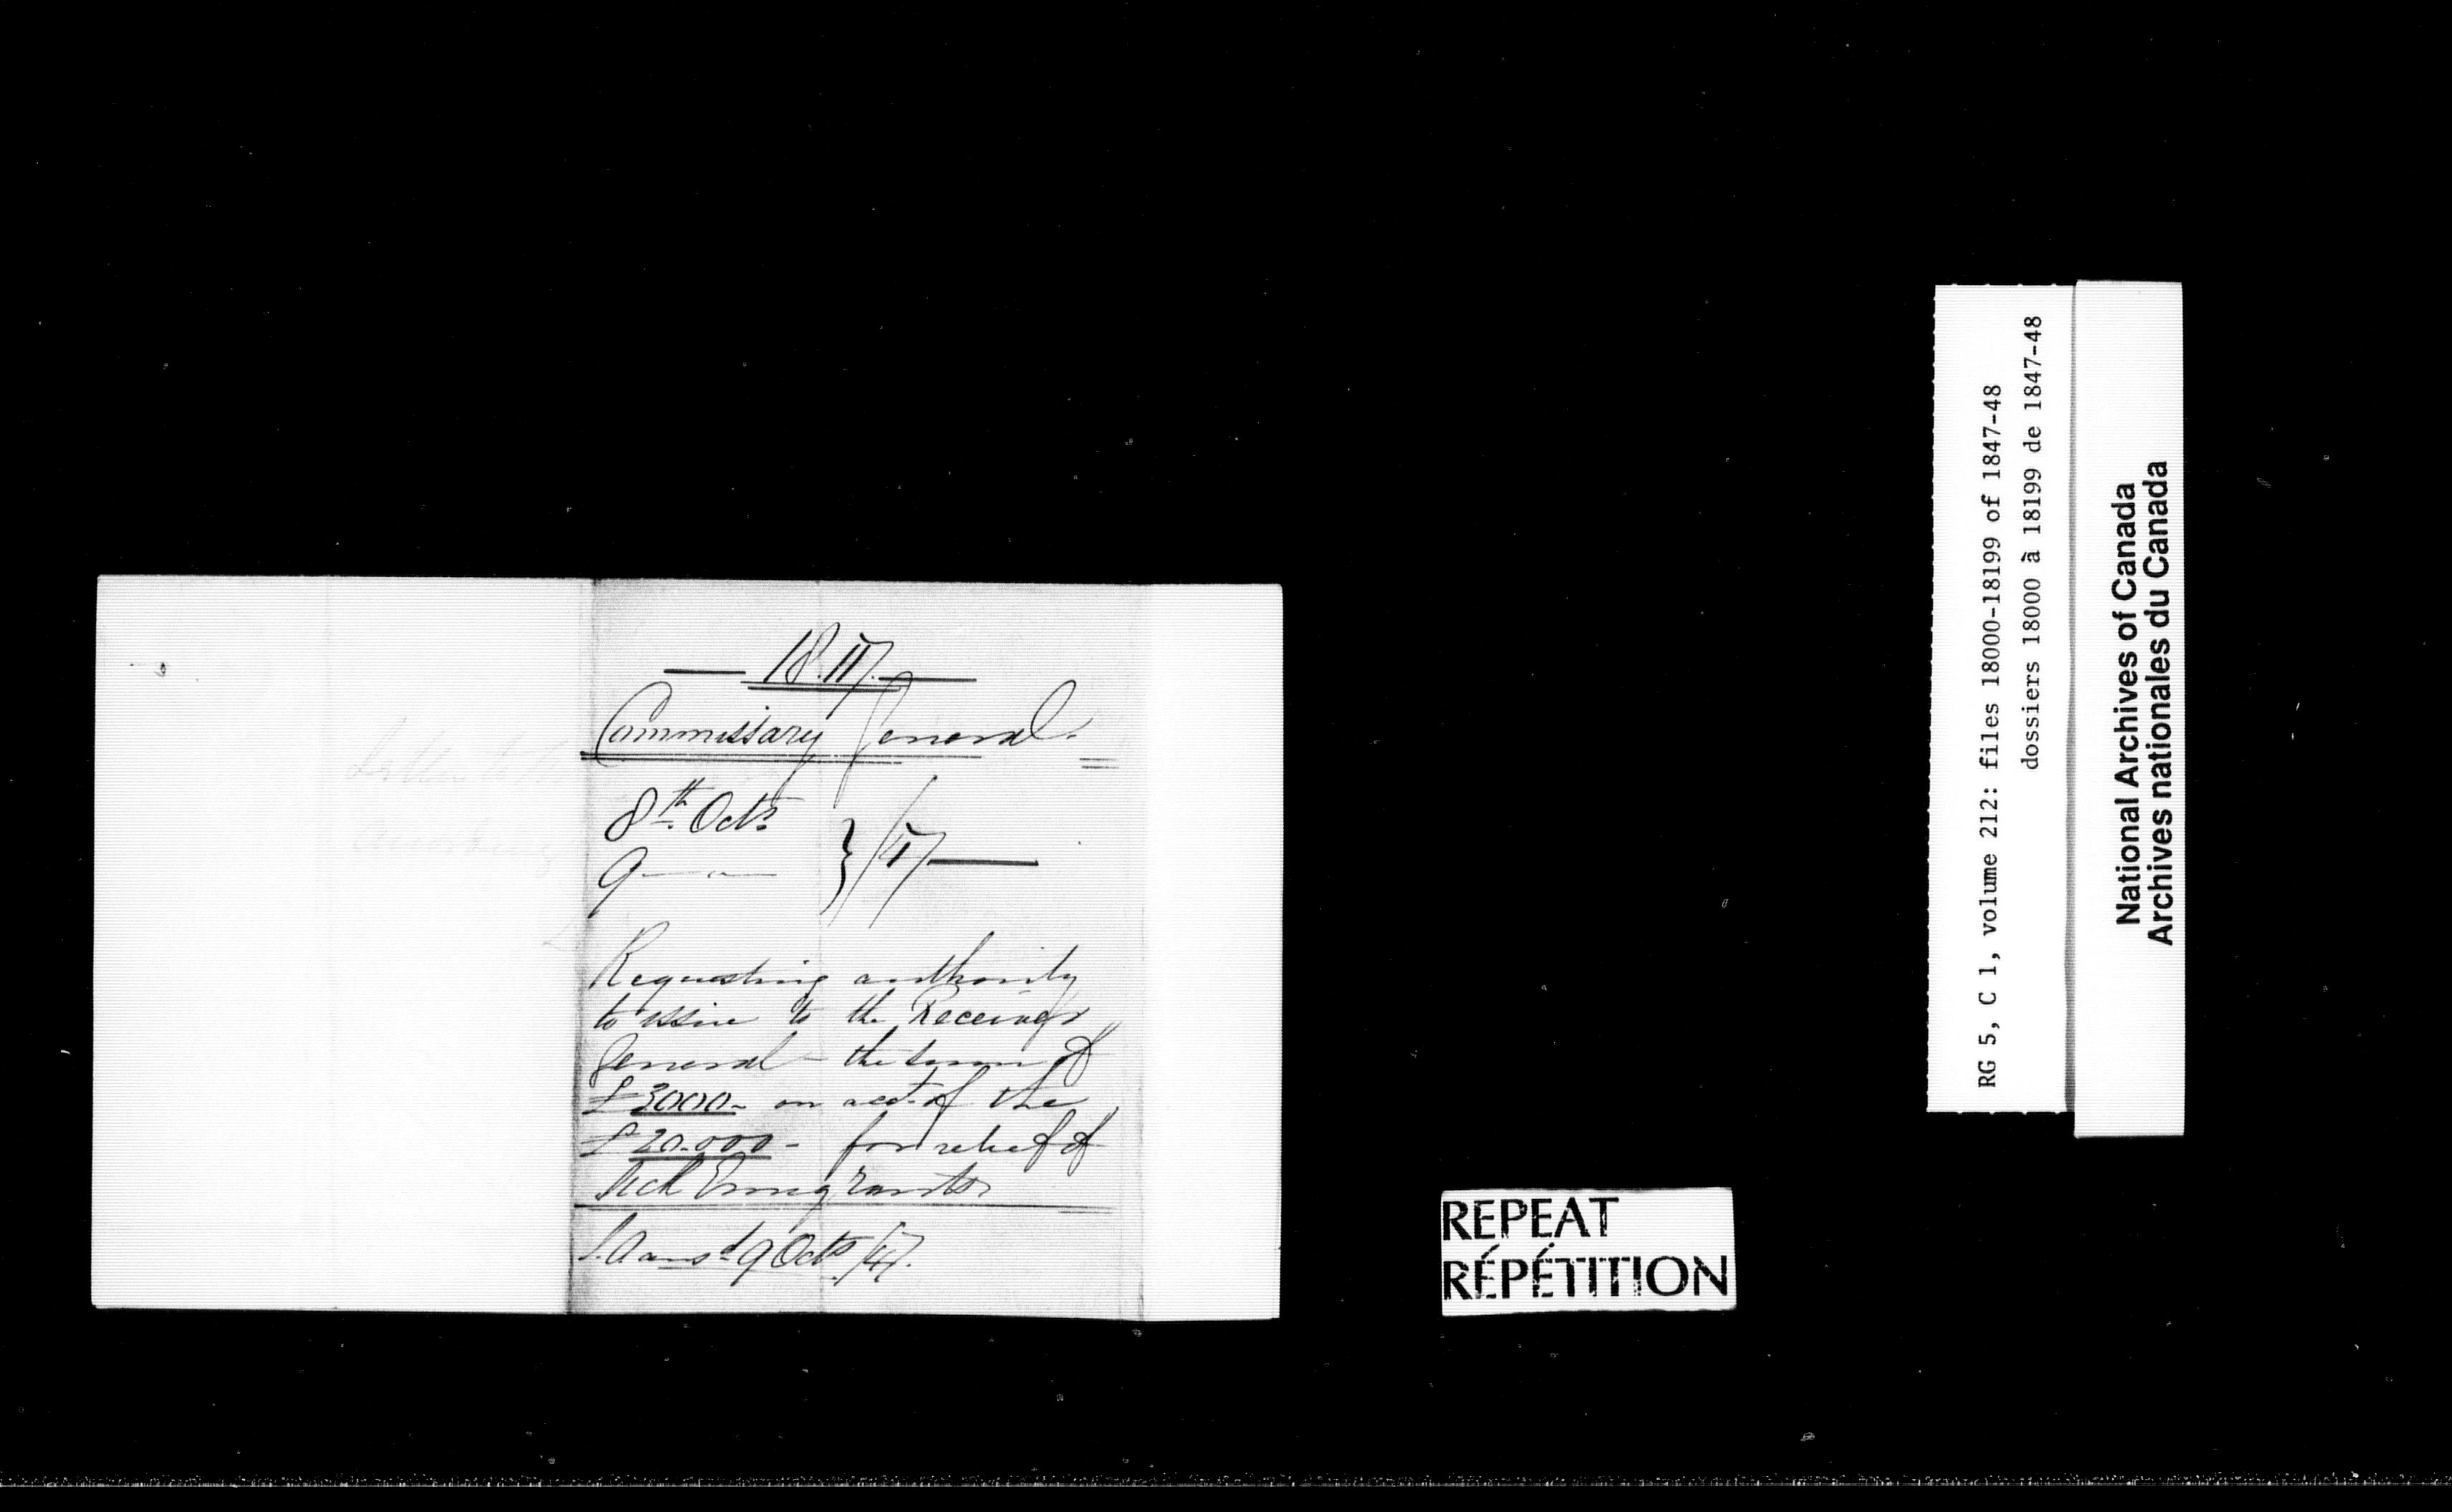 18.117.
Commissary General.
8th Octr
9 — " — } /47
Requesting authority
to issue to the Receiver
General – the sum of
£3000 – on acct. of the
£20.000 – for relief of
Sick Emigrants
Ansd 9 Octr /47.
RG 5, C 1, volume 212: files 18000-18199 of 1847-48
dossiers 18000 à 18199 de 1847-48
National Archives of Canada
Archives nationales du Canada
REPEAT
RÉPÉTITION